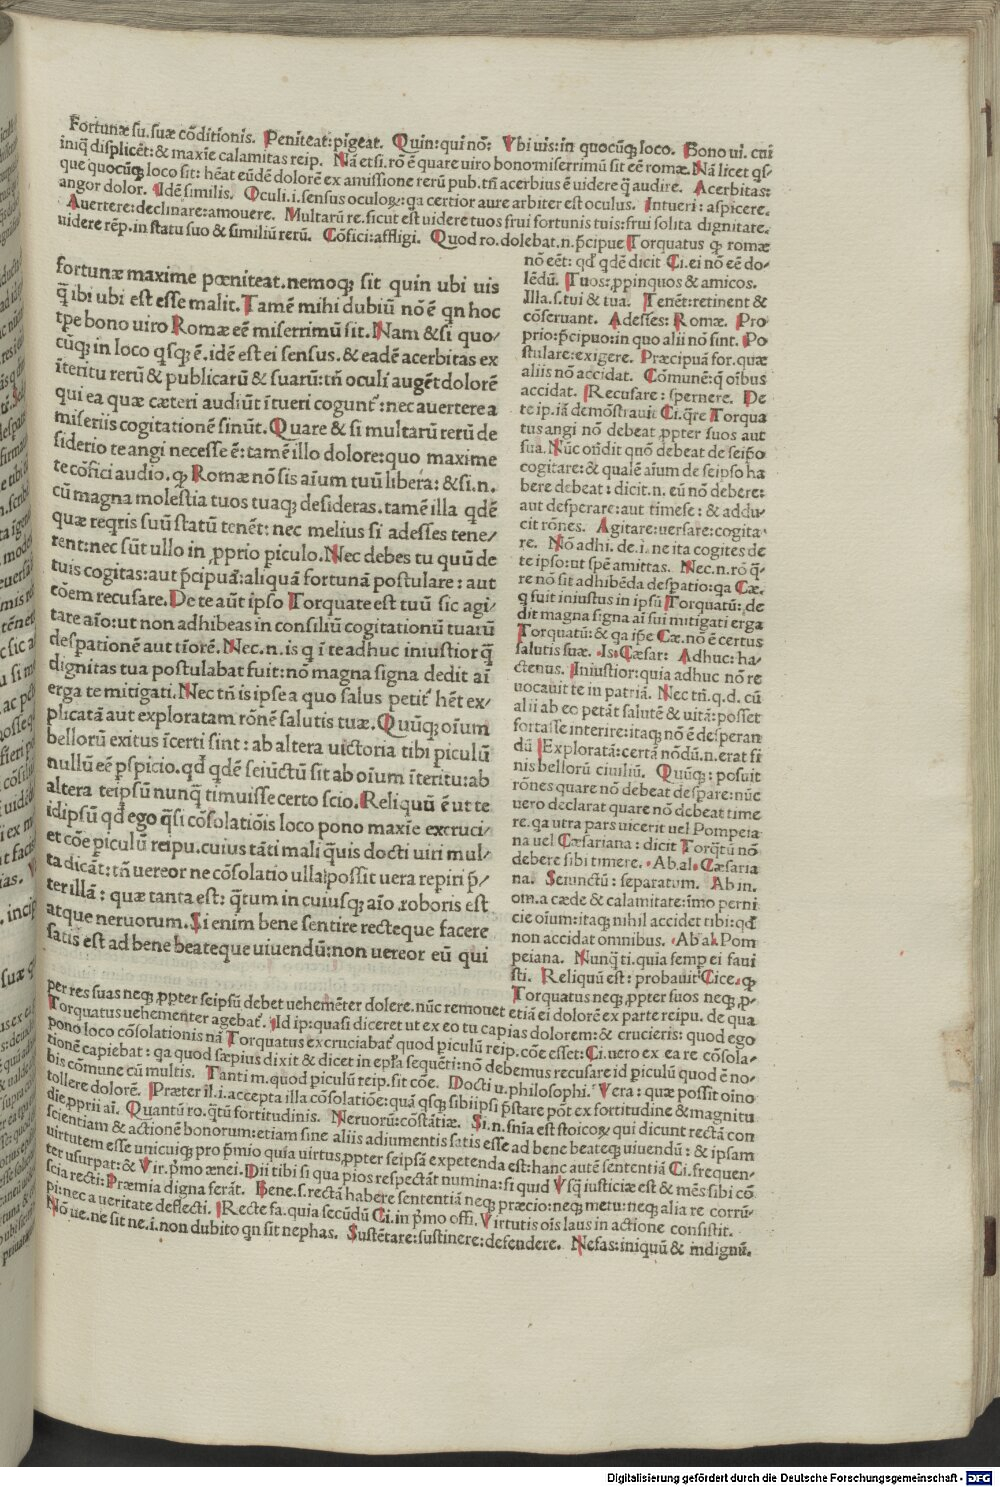 Fortunæ su. suæ cõditionis. Peniteat: pigeat. Quin: qui nõ: Vbi uis: in quocũq; loco. Bono ui. cui
iniq̃ displicẽt: & maxĩe calamitas reip. Nã etsi. rõ ẽ quare uiro bono miserrimũ sit eẽ romæ. Nã licet qs-
que quocũq; loco sit: hẽat eũdẽ dolorẽ ex amissione rerũ pub. tñ acerbius ẽ uidere q̃ audire. Acerbitas:
angor dolor. Idẽ similis. Oculi. i. sensus oculoꝝ: qa certior aure arbiter est oculus. Intueri: aspicere.
Auertere: declinare: amouere. Multarũ re. sicut est uidere tuos frui fortunis tuis: frui solita dignitate.
uidere rẽp. in statu suo & similiũ rerũ. Cõfici: affligi. Quod ro. dolebat. n. p̃cipue Torquatus ꝙ romæ
fortunæ maxime pœniteat. nemoq; sit quin ubi uis
q̃ ibi ubi est esse malit. Tamẽ mihi dubiũ nõ ẽ qn hoc
tp̃e bono uiro Romæ eẽ miserrimũ sit. Nam & si quo-
cũq; in loco qsq; ẽ. idẽ est ei sensus. & eadẽ acerbitas ex
ĩteritu rerũ & publicarũ & suarũ: tñ oculi augẽt dolorẽ
qui ea quæ cæteri audiũt ĩtueri cogunt᷑: nec auertere a
miseriis cogitationẽ sinũt. Quare & si multarũ rerũ de
siderio te angi necesse ẽ: tamẽ illo dolore: quo maxime
te cõfici audio. ꝙ Romæ nõ sis aĩum tuũ libera: & si. n.
cũ magna molestia tuos tuaq; desideras. tamẽ illa qdẽ
quæ reqris suũ statũ tenẽt: nec melius si adesses tene-
rent: nec sũt ullo in ꝓprio piculo. Nec debes tu quũ de
tuis cogitas: aut p̃cipuã: aliquã fortunã postulare: aut
cõem recusare. De te aũt ipso Torquate est tuũ sic agi-
tare aĩo: ut non adhibeas in consiliũ cogitationũ tuarũ
despationẽ aut tĩorẽ. Nec. n. is q ĩ te adhuc iniustior q̃
dignitas tua postulabat fuit: nõ magna signa dedit aĩ
erga te mitigati. Nec tñ is ipse a quo salus petit᷑ hẽt ex-
plicatã aut exploratam rõnẽ salutis tuæ. Quũq; oĩum
bellorũ exitus ĩcerti sint: ab altera uictoria tibi piculũ
nullũ eẽ p̃spicio. qđ qdẽ seiũctũ sit ab oĩum ĩteritu: ab
altera teipsũ nunq̃ timuisse certo scio. Reliquũ ẽ ut te
idipsũ qđ ego q̃si cõsolatiõis loco pono maxĩe excruci-
et cõe piculũ reipu. cuius tãti mali q̃uis docti uiri mul-
ta dicãt: tñ uereor ne cõsolatio ulla possit uera repiri p̃-
ter illã: quæ tanta est: q̃tum in cuiusq; aĩo. roboris est
atque neruorum. Si enim bene sentire recteque facere
satis est ad bene beateque uiuendũ: non uereor eũ qui
nõ eẽt: qđ qdẽ dicit Ci. ei nõ eẽ do-
lẽdũ. Tuos: ꝓpinquos & amicos.
Illa. s. tui & tua. Tenẽt: retinent &
cõseruant. Adesses: Romæ. Pro
prio: p̃cipuo: in quo alii nõ sint. Po
stulare: exigere. Præcipuã for. quæ
aliis nõ accidat. Cõmunẽ: q̃ oĩbus
accidat. Recusare: spernere. De
te ip. iã demõstrauit Ci. q̃re Torqua
tus angi nõ debeat ꝓpter suos aut
sua. Nũc oñdit quõ debeat de seipo
cogitare: & qualẽ aĩum de seipso ha
bere debeat: dicit. n. eũ nõ debere:
aut desperare: aut timere: & addu-
cit rõnes. Agitare: uersare: cogita-
re. Nõ adhi. de. i. ne ita cogites de
te ipso: ut spẽ amittas. Nec. n. rõ q̃-
re nõ sit adhibẽda despatio: qa Cæ.
q fuit iniustus in ipsũ Torquatũ: de
dit magna signa aĩ sui mitigati erga
Torquatũ: & qa ip̃e Cæ. nõ ẽ certus
salutis suæ. Is: Cæsar: Adhuc: ha-
ctenus. Iniustior: quia adhuc nõ re
uocauit te in patriã. Nec tñ. q. d. cũ
alii ab eo petãt salutẽ & uitã: posset
fortasse interire: itaq; nõ ẽ desperan
dũ Exploratã: certã nõdũ. n. erat fi
nis bellorũ ciuiliũ. Quũq;: posuit
rõnes quare nõ debeat despare: nũc
uero declarat quare nõ debeat time
re. qa utra pars uicerit uel Pompeia
na uel Cæsariana: dicit Torq̃tũ nõ
debere sibi timere. Ab. al. Cæsaria
na. Seiunctũ: separatum. Ab in.
om. a cæde & calamitate: ĩmo perni
cie oĩum: itaq; nihil accidet tibi: qđ
non accidat omnibus. Ab al. Pom
peiana. Nunq̃ ti. quia semp ei faui
sti. Reliquũ est: probauit Cice. ꝙ
Torquatus neq; ꝓpter suos neq; ꝓ-
per res suas neq; ꝓpter seipsũ debet uehemẽter dolere. nũc remouet etiã ei dolorẽ ex parte reipu. de qua
Torquatus uehementer agebat᷑. Id ip: quasi diceret ut ex eo tu capias dolorem: & crucieris: quod ego
pono loco cõsolationis nã Torquatus excruciabat᷑ quod piculũ reip. cõe esset: Ci. uero ex ea re cõsola-
tionẽ capiebat: qa quod sæpius dixit & dicet in epl̃a sequẽti: nõ debemus recusare id piculũ quod ẽ no-
bis cõmune cũ multis. Tanti m. quod piculũ reip. sit cõe. Docti u. philosophi. Vera: quæ possit oĩno
tollere dolorẽ. Præter il. i. accepta illa cõsolatiõe: quã qsq; sibi ipsi p̃stare põt ex fortitudine & magnitu
die ꝓprii aĩ. Quantũ ro. q̃tũ fortitudinis. Neruorũ: cõstãtiæ. Si. n. sñia est stoicoꝝ qui dicunt rectã con
scientiam & actionẽ bonorum: etiam sine aliis adiumentis satis esse ad bene beateq; uiuendũ: & ipsam
uirtutem esse unicuiq; pro p̃mio quia uirtus ꝓpter seipsã expetenda est: hanc autẽ sententiã Ci. frequen-
ter usurpat: & Vir. p̃mo ænei. Dii tibi si qua pios respectãt numina: si quid Vsq̃ iusticiæ est & mẽs sibi cõ
scia recti: Præmia digna ferãt. Bene. s. rectã habere sententiã neq; præcio: neq; metu: neq; alia re corrũ-
pi: nec a ueritate deflecti. Recte fa. quia secũdũ Ci. in p̃mo offi. Virtutis oĩs laus in actione consistit.
Nõ ue. ne sit ne. i. non dubito qn sit nephas. Sustẽtare: sustinere: defendere. Nefas: iniquũ & ĩndignũ.
Digitalisierung gefördert durch die Deutsche Forschungsgemeinschaft - DFG